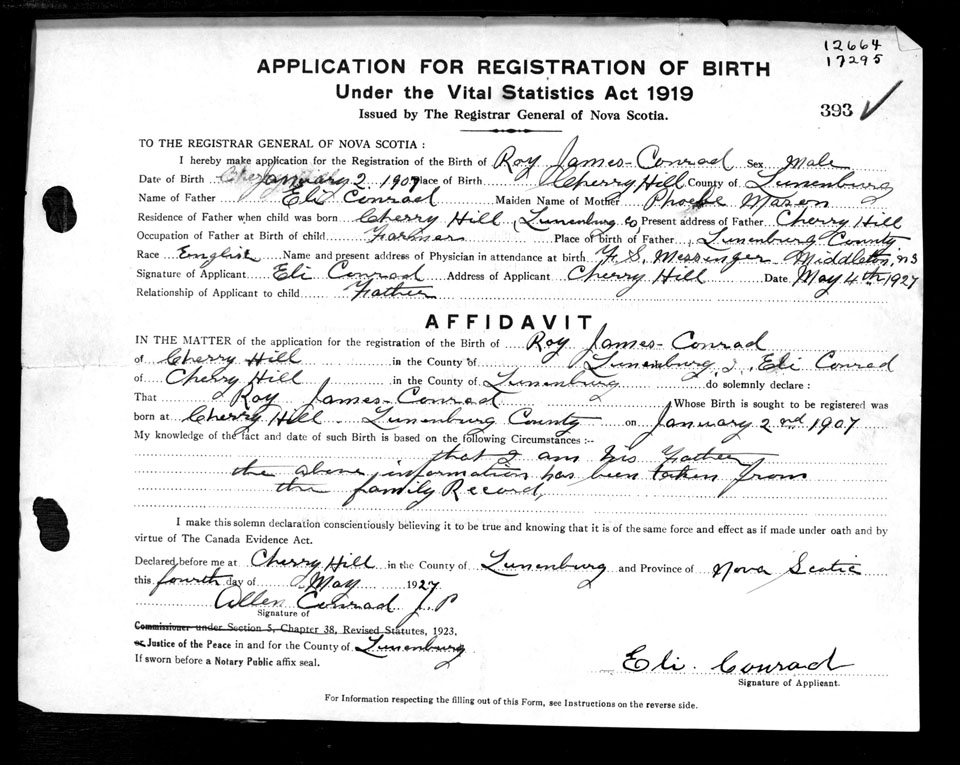 12664
17295
APPLICATION FOR REGISTRATION OF BIRTH
Under the Vital Statistics Act 1919
Issued by The Registrar General of Nova Scotia.
393 ✓
TO THE REGISTRAR GENERAL OF NOVA SCOTIA:
I hereby make application for the Registration of the Birth of Roy James-Conrad Sex Male
Date of Birth January 2 1907 Place of Birth Cherry Hill County of Lunenburg
Name of Father Eli Conrad Maiden Name of Mother Phoebe Mason
Residence of Father when child was born Cherry Hill, Lunenburg Co Present address of Father Cherry Hill
Occupation of Father at Birth of child Farmer Place of birth of Father Lunenburg County
Race English Name and present address of Physician in attendance at birth F. S. Messenger Middleton, N S
Signature of Applicant Eli Conrad Address of Applicant Cherry Hill Date May 4th 1927
Relationship of Applicant to child Father
AFFIDAVIT
IN THE MATTER of the application for the registration of the Birth of Roy James-Conrad
of Cherry Hill in the County of Lunenburg I, Eli Conrad
of Cherry Hill in the County of Lunenburg do solemnly declare:
That Roy James-Conrad Whose Birth is sought to be registered was
born at Cherry Hill Lunenburg County on January 2nd 1907
My knowledge of the fact and date of such Birth is based on the following Circumstances:--
that I am his Father
the above information has been taken from
the family Record,
I make this solemn declaration conscientiously believing it to be true and knowing that it is of the same force and effect as if made under oath and by
virtue of The Canada Evidence Act.
Declared before me at Cherry Hill in the County of Lunenburg and Province of Nova Scotia
this fourth day of May 1927
Allen Conrad J. P
Signature of
Commissioner under Section 5, Chapter 38, Revised Statutes, 1923,
or Justice of the Peace in and for the County of Lunenburg
If sworn before a Notary Public affix seal.
Eli Conrad
Signature of Applicant.
For Information respecting the filling out of this Form, see Instructions on the reverse side.